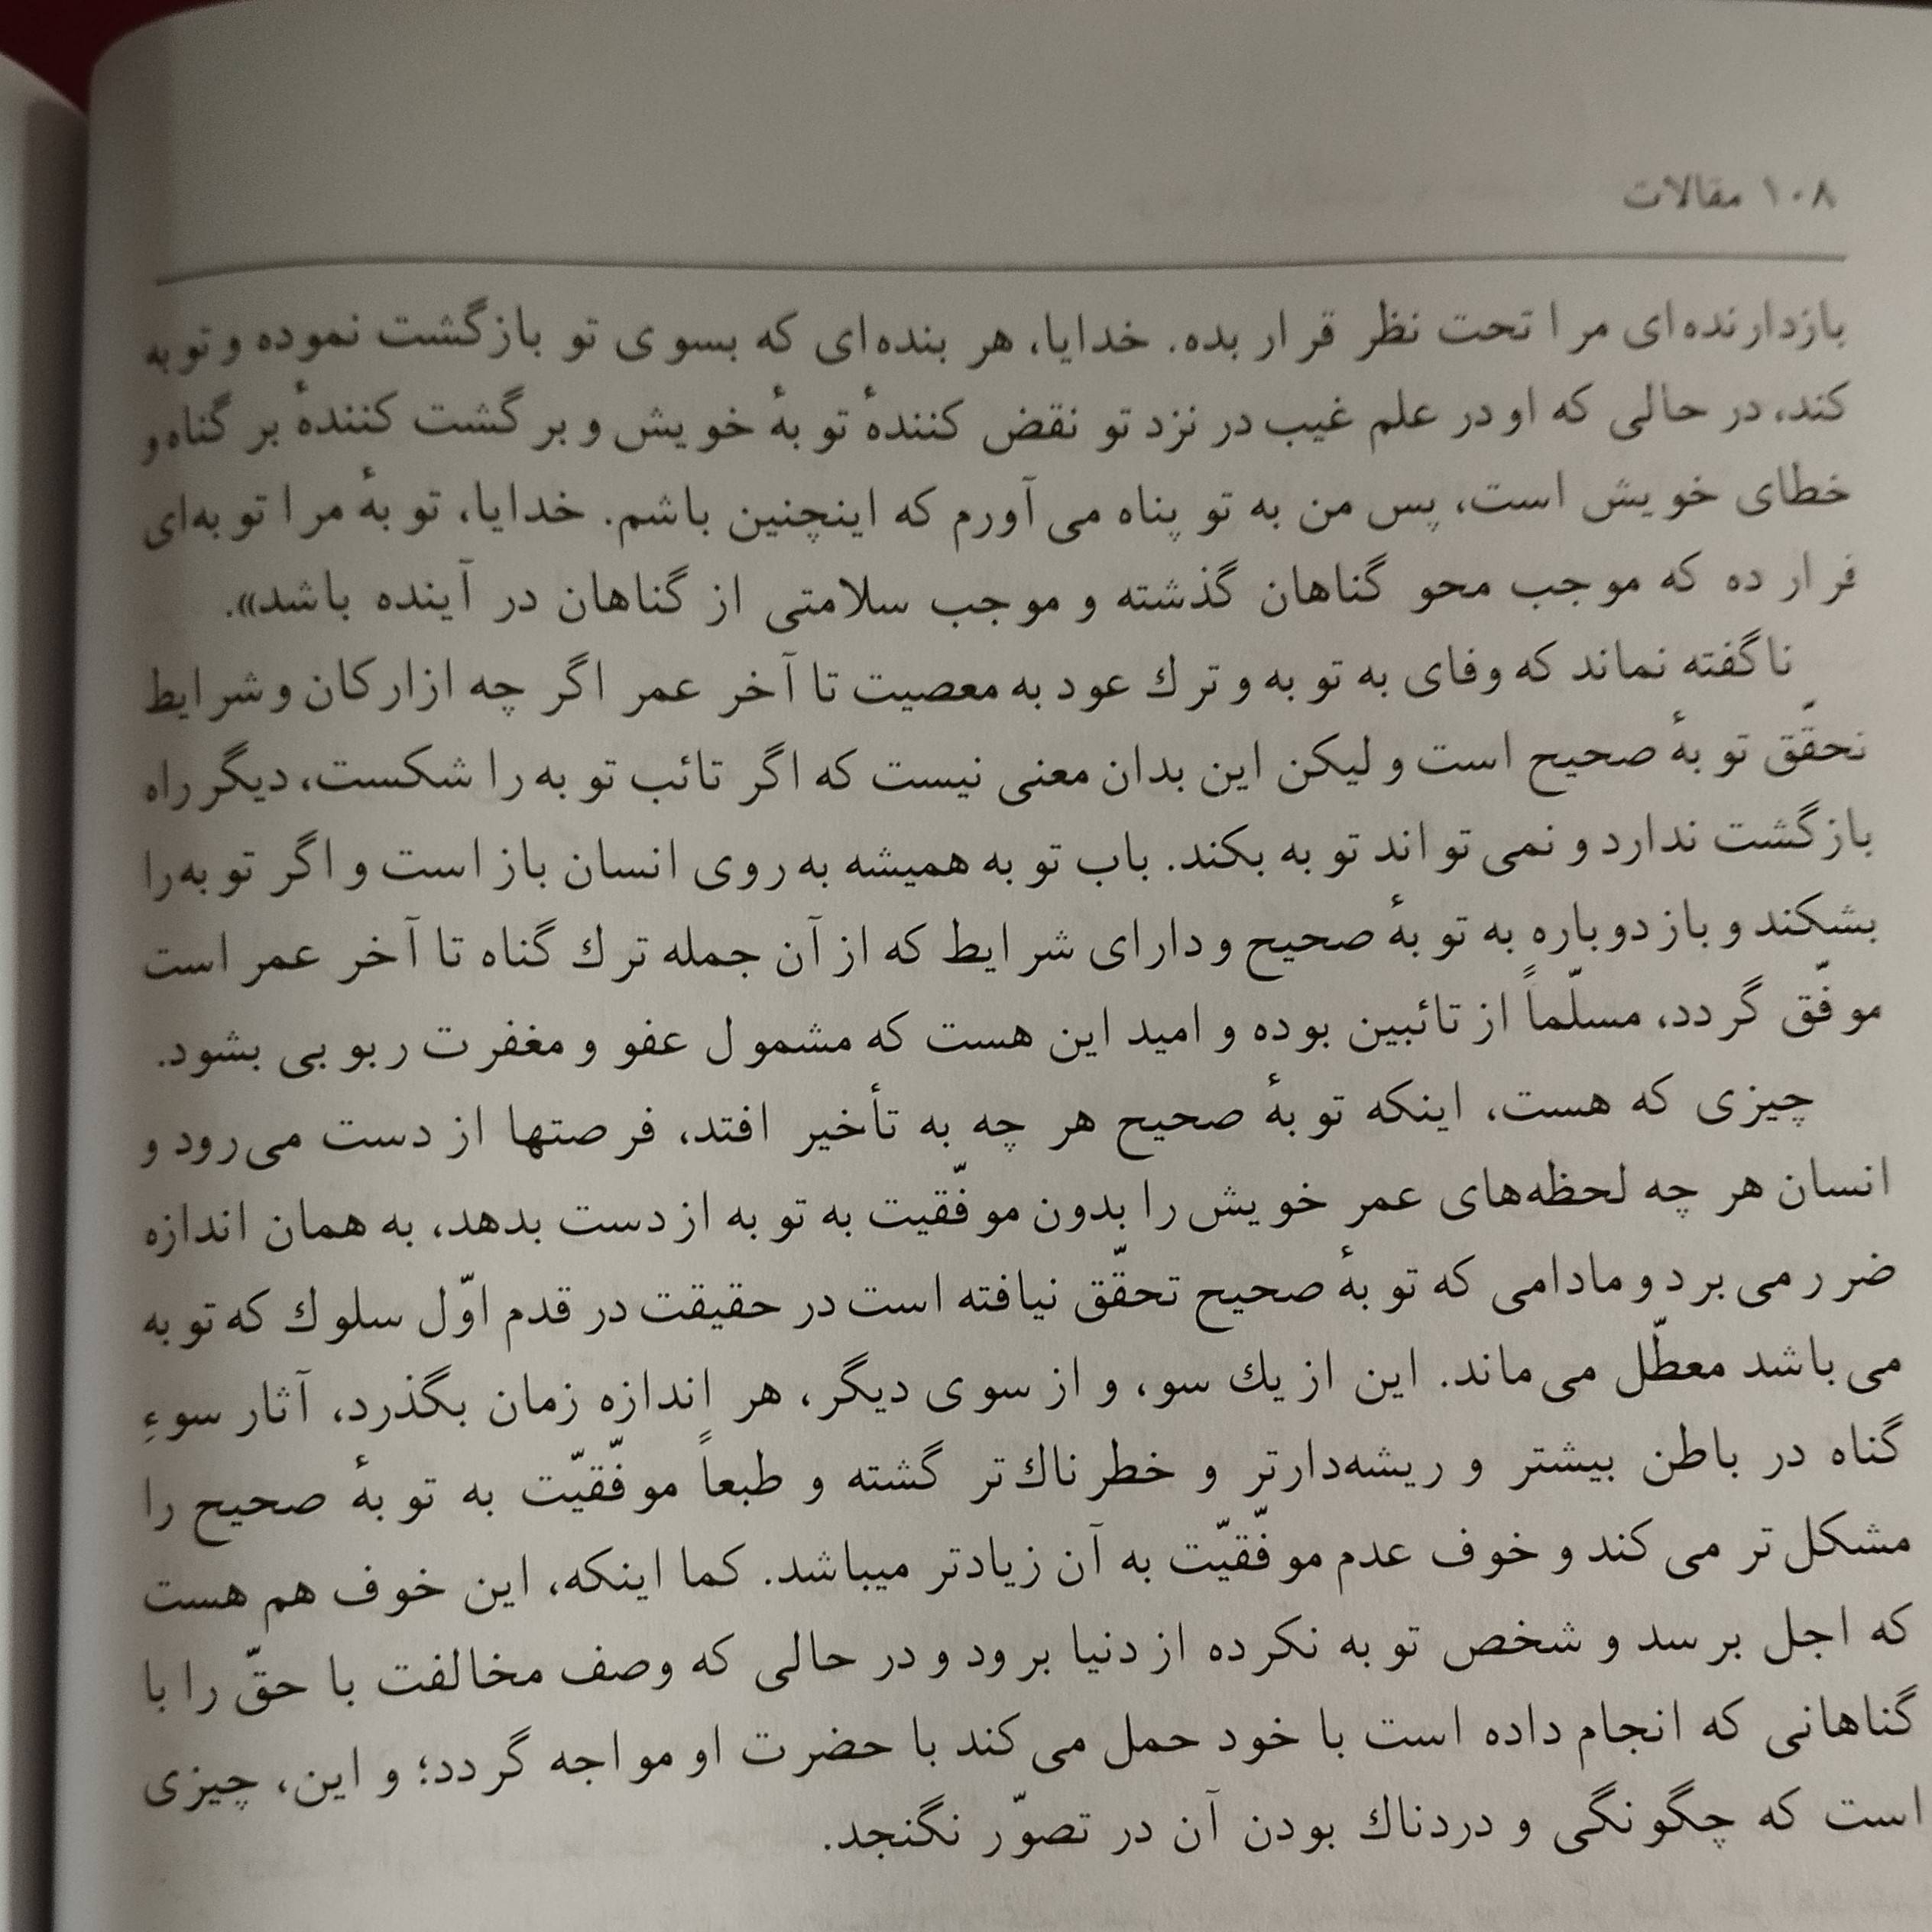 ۱۰۸ مقالات
بازدارنده‌ای مرا تحت نظر قرار بده. خدایا، هر بنده‌ای که بسوی تو بازگشت نموده و توبه
کند، در حالی که او در علم غیب در نزد تو نقض کنندهٔ توبهٔ خویش و برگشت کنندهٔ بر گناه و
خطای خویش است، پس من به تو پناه می‌آورم که اینچنین باشم. خدایا، توبهٔ مرا توبه‌ای
قرار ده که موجب محو گناهان گذشته و موجب سلامتی از گناهان در آینده باشد».
ناگفته نماند که وفای به توبه و ترك عود به معصیت تا آخر عمر اگر چه از ارکان و شرایط
تحقّق توبهٔ صحیح است و لیکن این بدان معنی نیست که اگر تائب توبه را شکست، دیگر راه
بازگشت ندارد و نمی‌تواند توبه بکند. باب توبه همیشه به روی انسان باز است و اگر توبه را
بشکند و باز دوباره به توبهٔ صحیح و دارای شرایط که از آن جمله ترك گناه تا آخر عمر است
موفّق گردد، مسلّماً از تائبین بوده و امید این هست که مشمول عفو و مغفرت ربوبی بشود.
چیزی که هست، اینکه توبهٔ صحیح هر چه به تأخیر افتد، فرصتها از دست می‌رود و
انسان هر چه لحظه‌های عمر خویش را بدون موفّقیت به توبه از دست بدهد، به همان اندازه
ضرر می‌برد و مادامی که توبهٔ صحیح تحقّق نیافته است در حقیقت در قدم اوّل سلوك که توبه
می‌باشد معطّل می‌ماند. این از یك سو، و از سوی دیگر، هر اندازه زمان بگذرد، آثار سوءِ
گناه در باطن بیشتر و ریشه‌دارتر و خطرناك‌تر گشته و طبعاً موفّقیّت به توبهٔ صحیح را
مشکل‌تر می‌کند و خوف عدم موفّقیّت به آن زیادتر میباشد. کما اینکه، این خوف هم هست
که اجل برسد و شخص توبه نکرده از دنیا برود و در حالی که وصف مخالفت با حقّ را با
گناهانی که انجام داده است با خود حمل می‌کند با حضرت او مواجه گردد؛ و این، چیزی
است که چگونگی و دردناك بودن آن در تصوّر نگنجد.